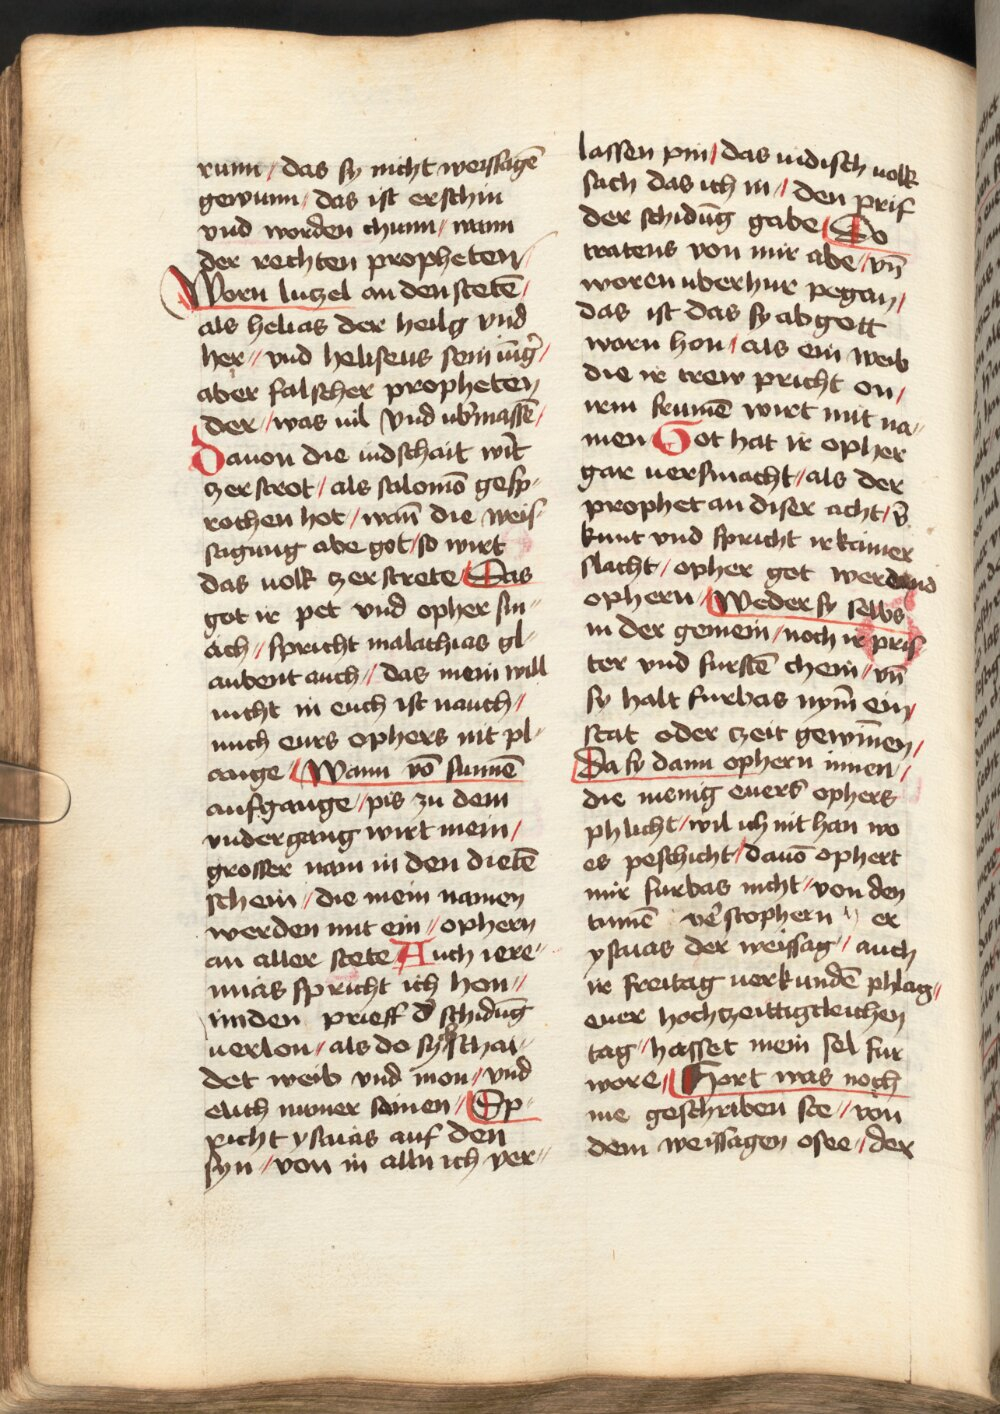 rumi / das sy nicht weissagē
gewunn / das ist erschin
vnd worden chunn / wann
der rechten propheten /
Worn lutzel an den stetē /
als helias der heilg vnd
her // vnd heliseus sein iūg̉ /
aber falscher propheten
der / was uil vnd ub̉massē /
Dauon die iudschait wir̉t
zerstrot / als salomō gesp-
rochen hot / wañ die weis
sagung abe got / so wirt
das uolk zerstrete Das
got ir pet vnd opher sin //
ach / spricht malachias gl-
aubent auch / das mein will
nicht in euch ist nauch /
nuch eurs ophers nit pl-
ange / Wann vō sunnē
aufgange // pis zu dem
vndergang wirt mein /
grosser nam in den dietē
schein / die mein namen
werden mit ein // ophern
an aller stete Auch iere-
mias spricht ich hon //
inden prieff d̉ schidūg
uerlon / als do sy schai-
det weib vnd mon / vnd
elich nimer samen // Sp-
richt ysaias auf den
syn // von in alln ich ver-
lassen pin / das iudisch uolk
sach das ich in / den prif
der schidūg gabe / Do
tratens von mir abe / vn̄
woren uberhur pegan /
das ist das sy abgott
worn hon / als ein weib
die ir trew pricht on /
irm frumē wirt mit na-
men Got hat ir opher
gar uersmacht / als der
prophet an diser acht / v̄
kunt vnd spricht ir kamer
slacht / opher got werdend
ophern / Weder sy selbs
in der gemein / noch ir pris
ter vnd furstē chein / vn̄
sy halt furbas nym̄ ein /
stat oder zeit gewin̄en /
Da sy dann ophern innen /
die menig euers̉ ophers
phlicht / wil ich nit han wo
es peschicht / dauō ophert
mir furbas nicht / von den
tumē ver̉stophern er
ysaias der weissag // auch
ir freitag uerkundē phlag //
euer hochzeittigkleichen
tag / hasset mein sel fur
wore / Hort was noch
me geschriben ste // von
dem weissagen osee / der